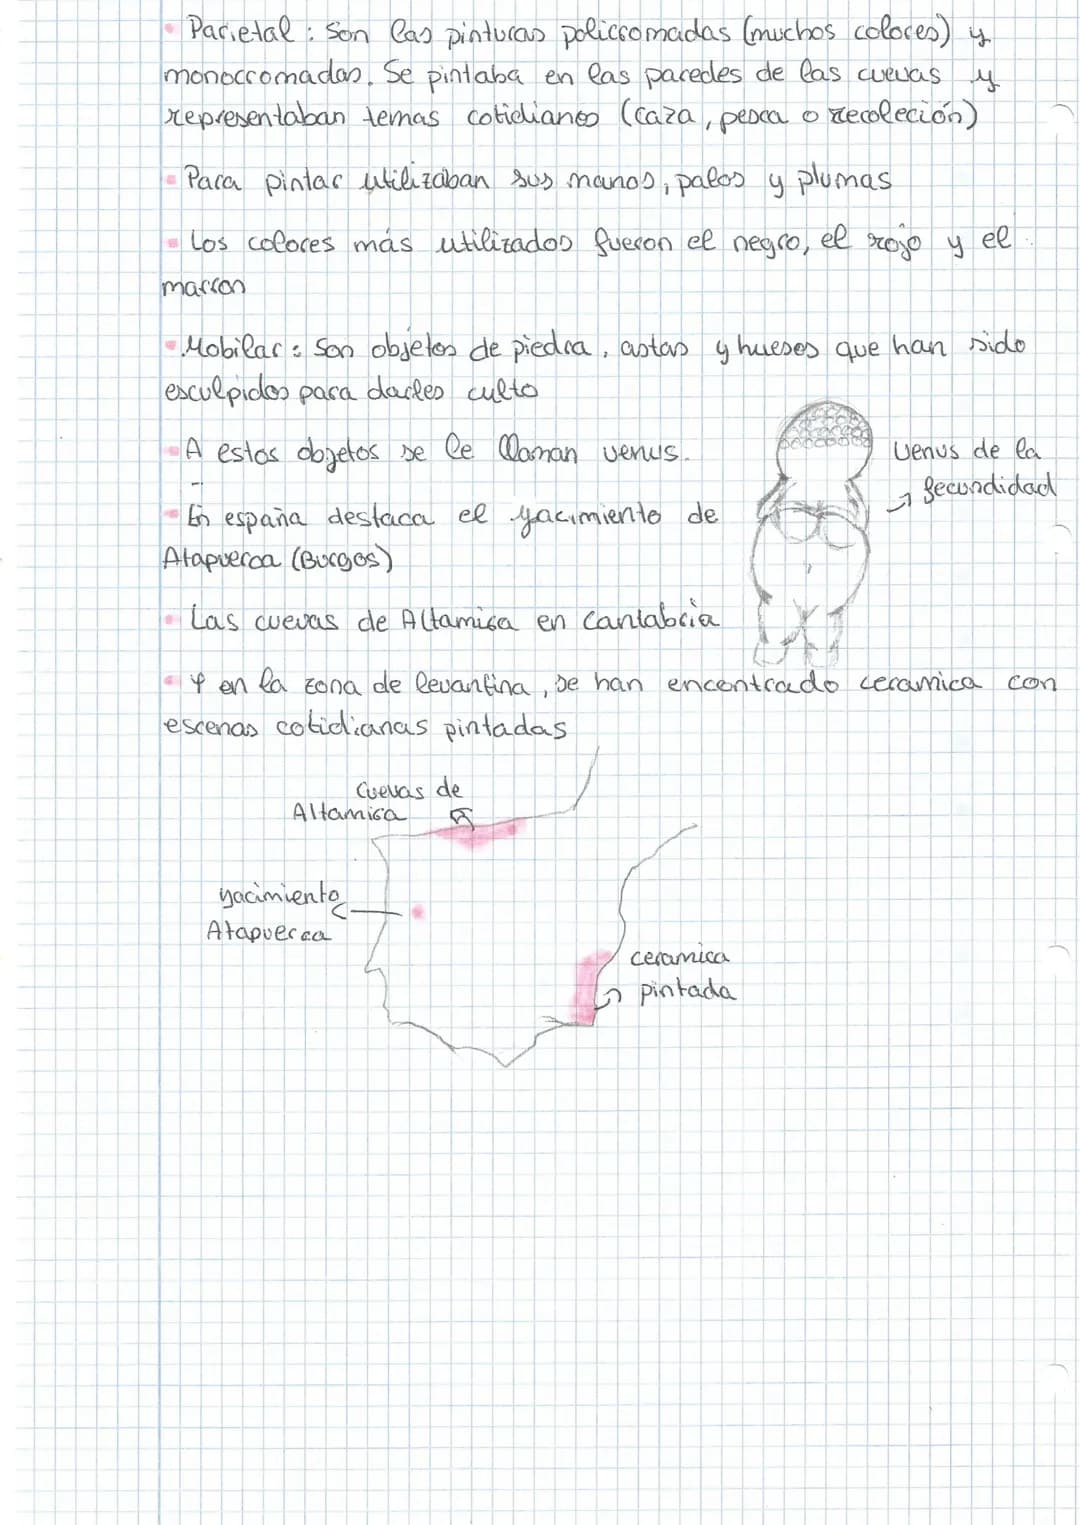 Parietal : Son las pinturas policromadas (muchos colores) y
monocromadas. Se pintaba en las paredes de las cuevas y
representaban temas cotidianos (caza, pesca o recoleción)
Para pintar utilizaban sus manos, palos y plumas
Los colores más utilizados fueron el negro, el rojo y el
marron
Mobilar : Son objetos de piedra, astas y hueses que han sido
esculpidos para darles culto
A estos objetos se le llaman venus.
Venus de la
fecundidad
En españa destaca el yacimiento de
Atapuerca (Burgos)
Las cuevas de Altamira en Cantabria
Y en la zona de levantina, se han encontrado ceramica con
escenas cotidianas pintadas
Cuevas de
Altamira
yacimiento
Atapuerca
ceramica
pintada